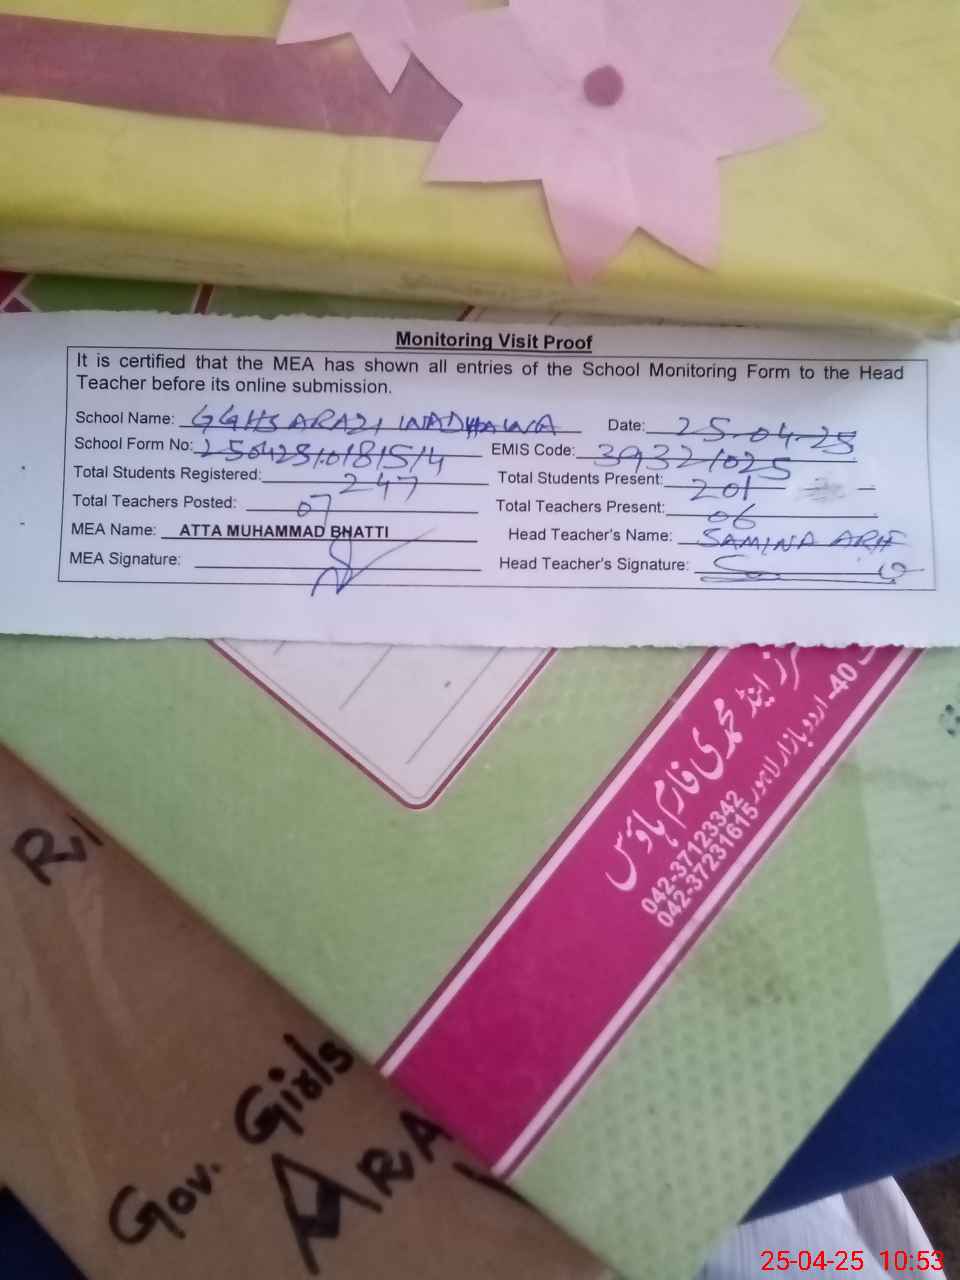 Monitoring Visit Proof
It is certified that the MEA has shown all entries of the School Monitoring Form to the Head
Teacher before its online submission.
School Name: GGHS ARAZI WADHAWA Date: 25-04-25
School Form No: EMIS Code: 39321025
Total Students Registered: 247 Total Students Present: 201
Total Teachers Posted: 07 Total Teachers Present: 06
MEA Name: ATTA MUHAMMAD BHATTI Head Teacher's Name: SAMINA ARIF
MEA Signature: Head Teacher's Signature:
رز اینڈ محمدی فارم ہاؤس
40- اردو بازار لاہور
042-37123342
042-37231615
Gov. Girls
ARA
25-04-25 10:53